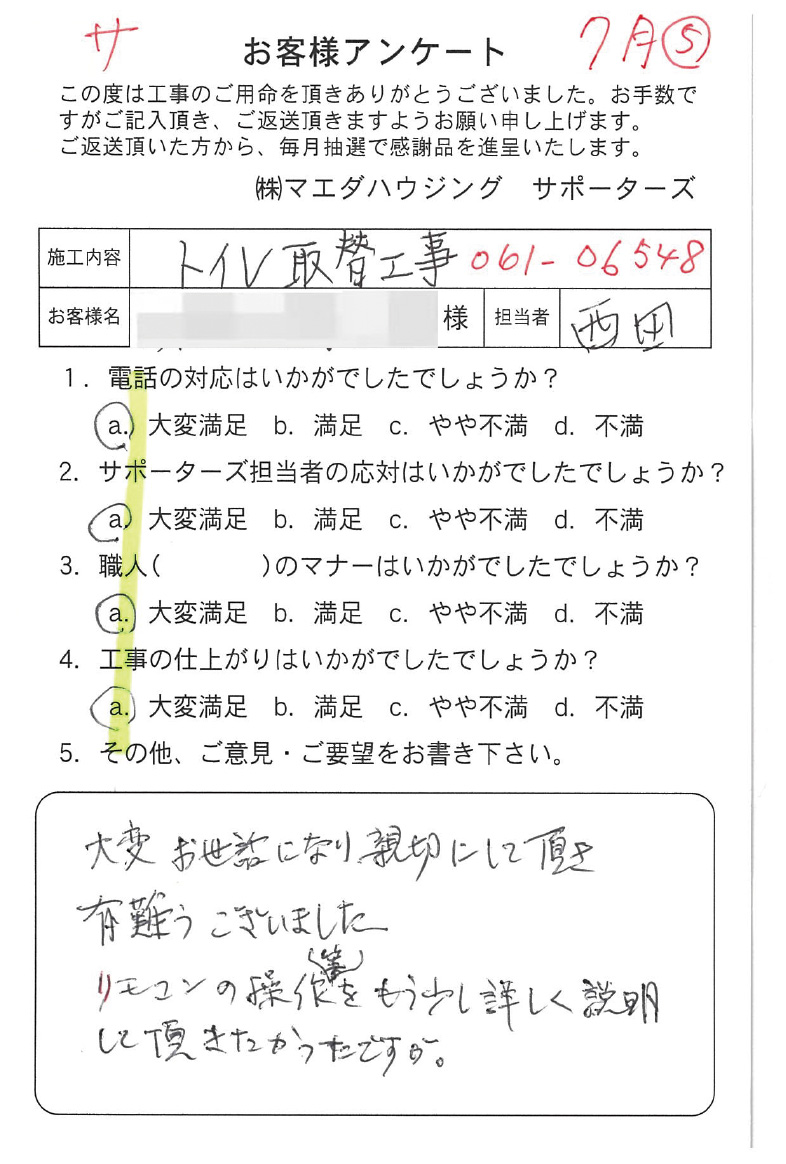 サ
お客様アンケート
7月⑤
この度は工事のご用命を頂きありがとうございました。お手数で
すがご記入頂き、ご返送頂きますようお願い申し上げます。
ご返送頂いた方から、毎月抽選で感謝品を進呈いたします。
㈱マエダハウジング　サポーターズ
施工内容 トイレ取替工事 061-06548
お客様名 様 担当者 西田
1. 電話の対応はいかがでしたでしょうか？
a. 大変満足 b. 満足 c. やや不満 d. 不満
2. サポーターズ担当者の応対はいかがでしたでしょうか？
a. 大変満足 b. 満足 c. やや不満 d. 不満
3. 職人(　　　　)のマナーはいかがでしたでしょうか？
a. 大変満足 b. 満足 c. やや不満 d. 不満
4. 工事の仕上がりはいかがでしたでしょうか？
a. 大変満足 b. 満足 c. やや不満 d. 不満
5. その他、ご意見・ご要望をお書き下さい。
大変お世話になり親切にして頂き
有難うございました
リモコンの操作(等)をもう少し詳しく説明
して頂きたかったですが。